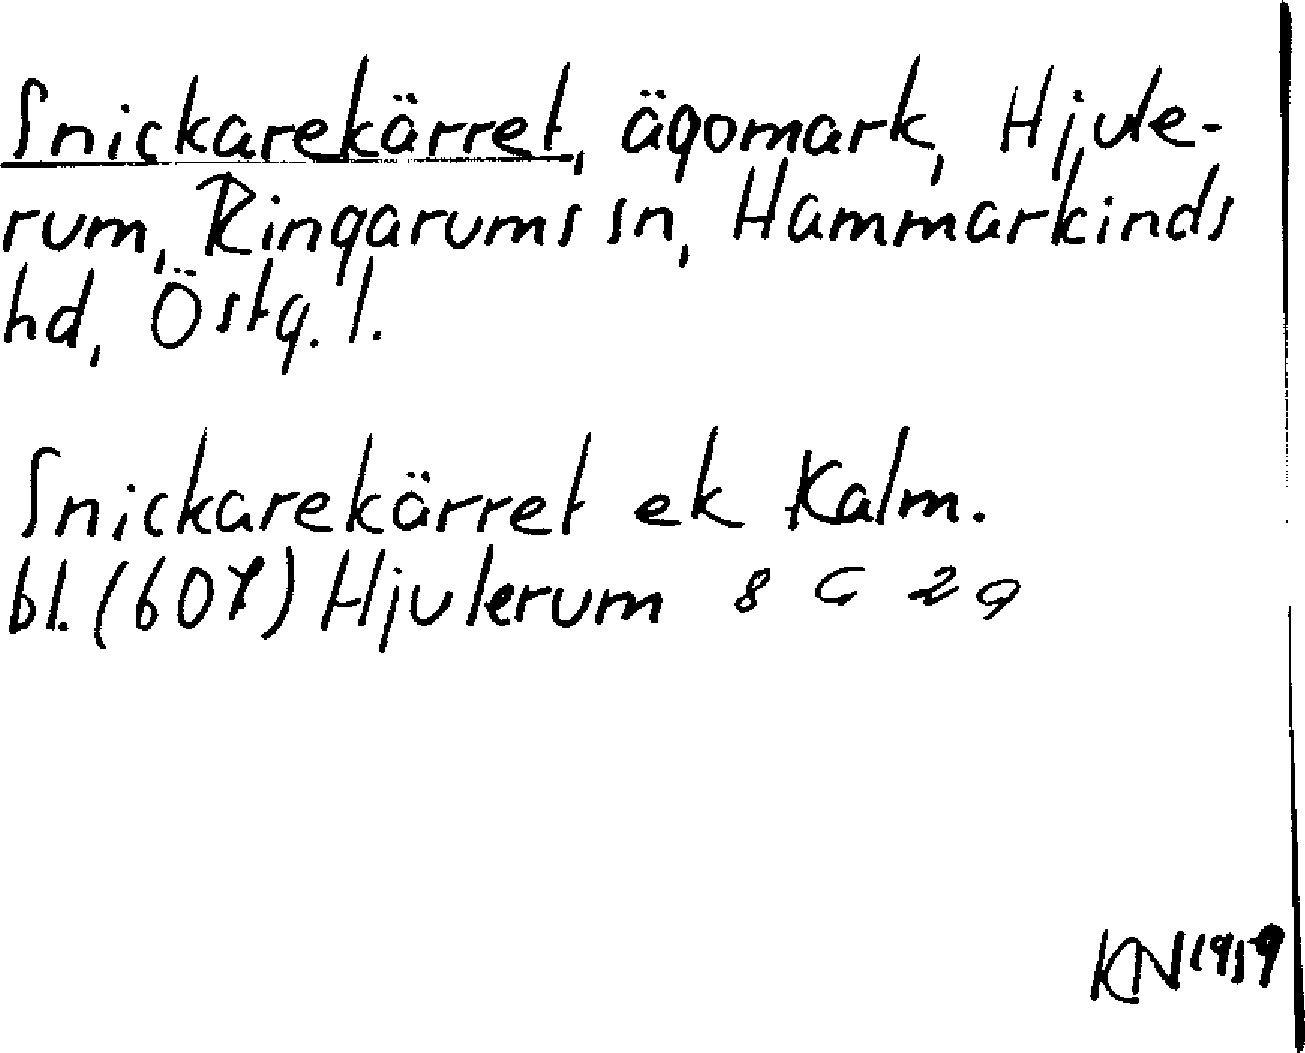 Snickarekärret, ägomark, Hjule-
rum, Ringarums sn, Hammarkinds
hd, Östg. l.
Snickarekärret ek Kalm.
bl. (607) Hjulerum 8 G 2 g
KN 1959